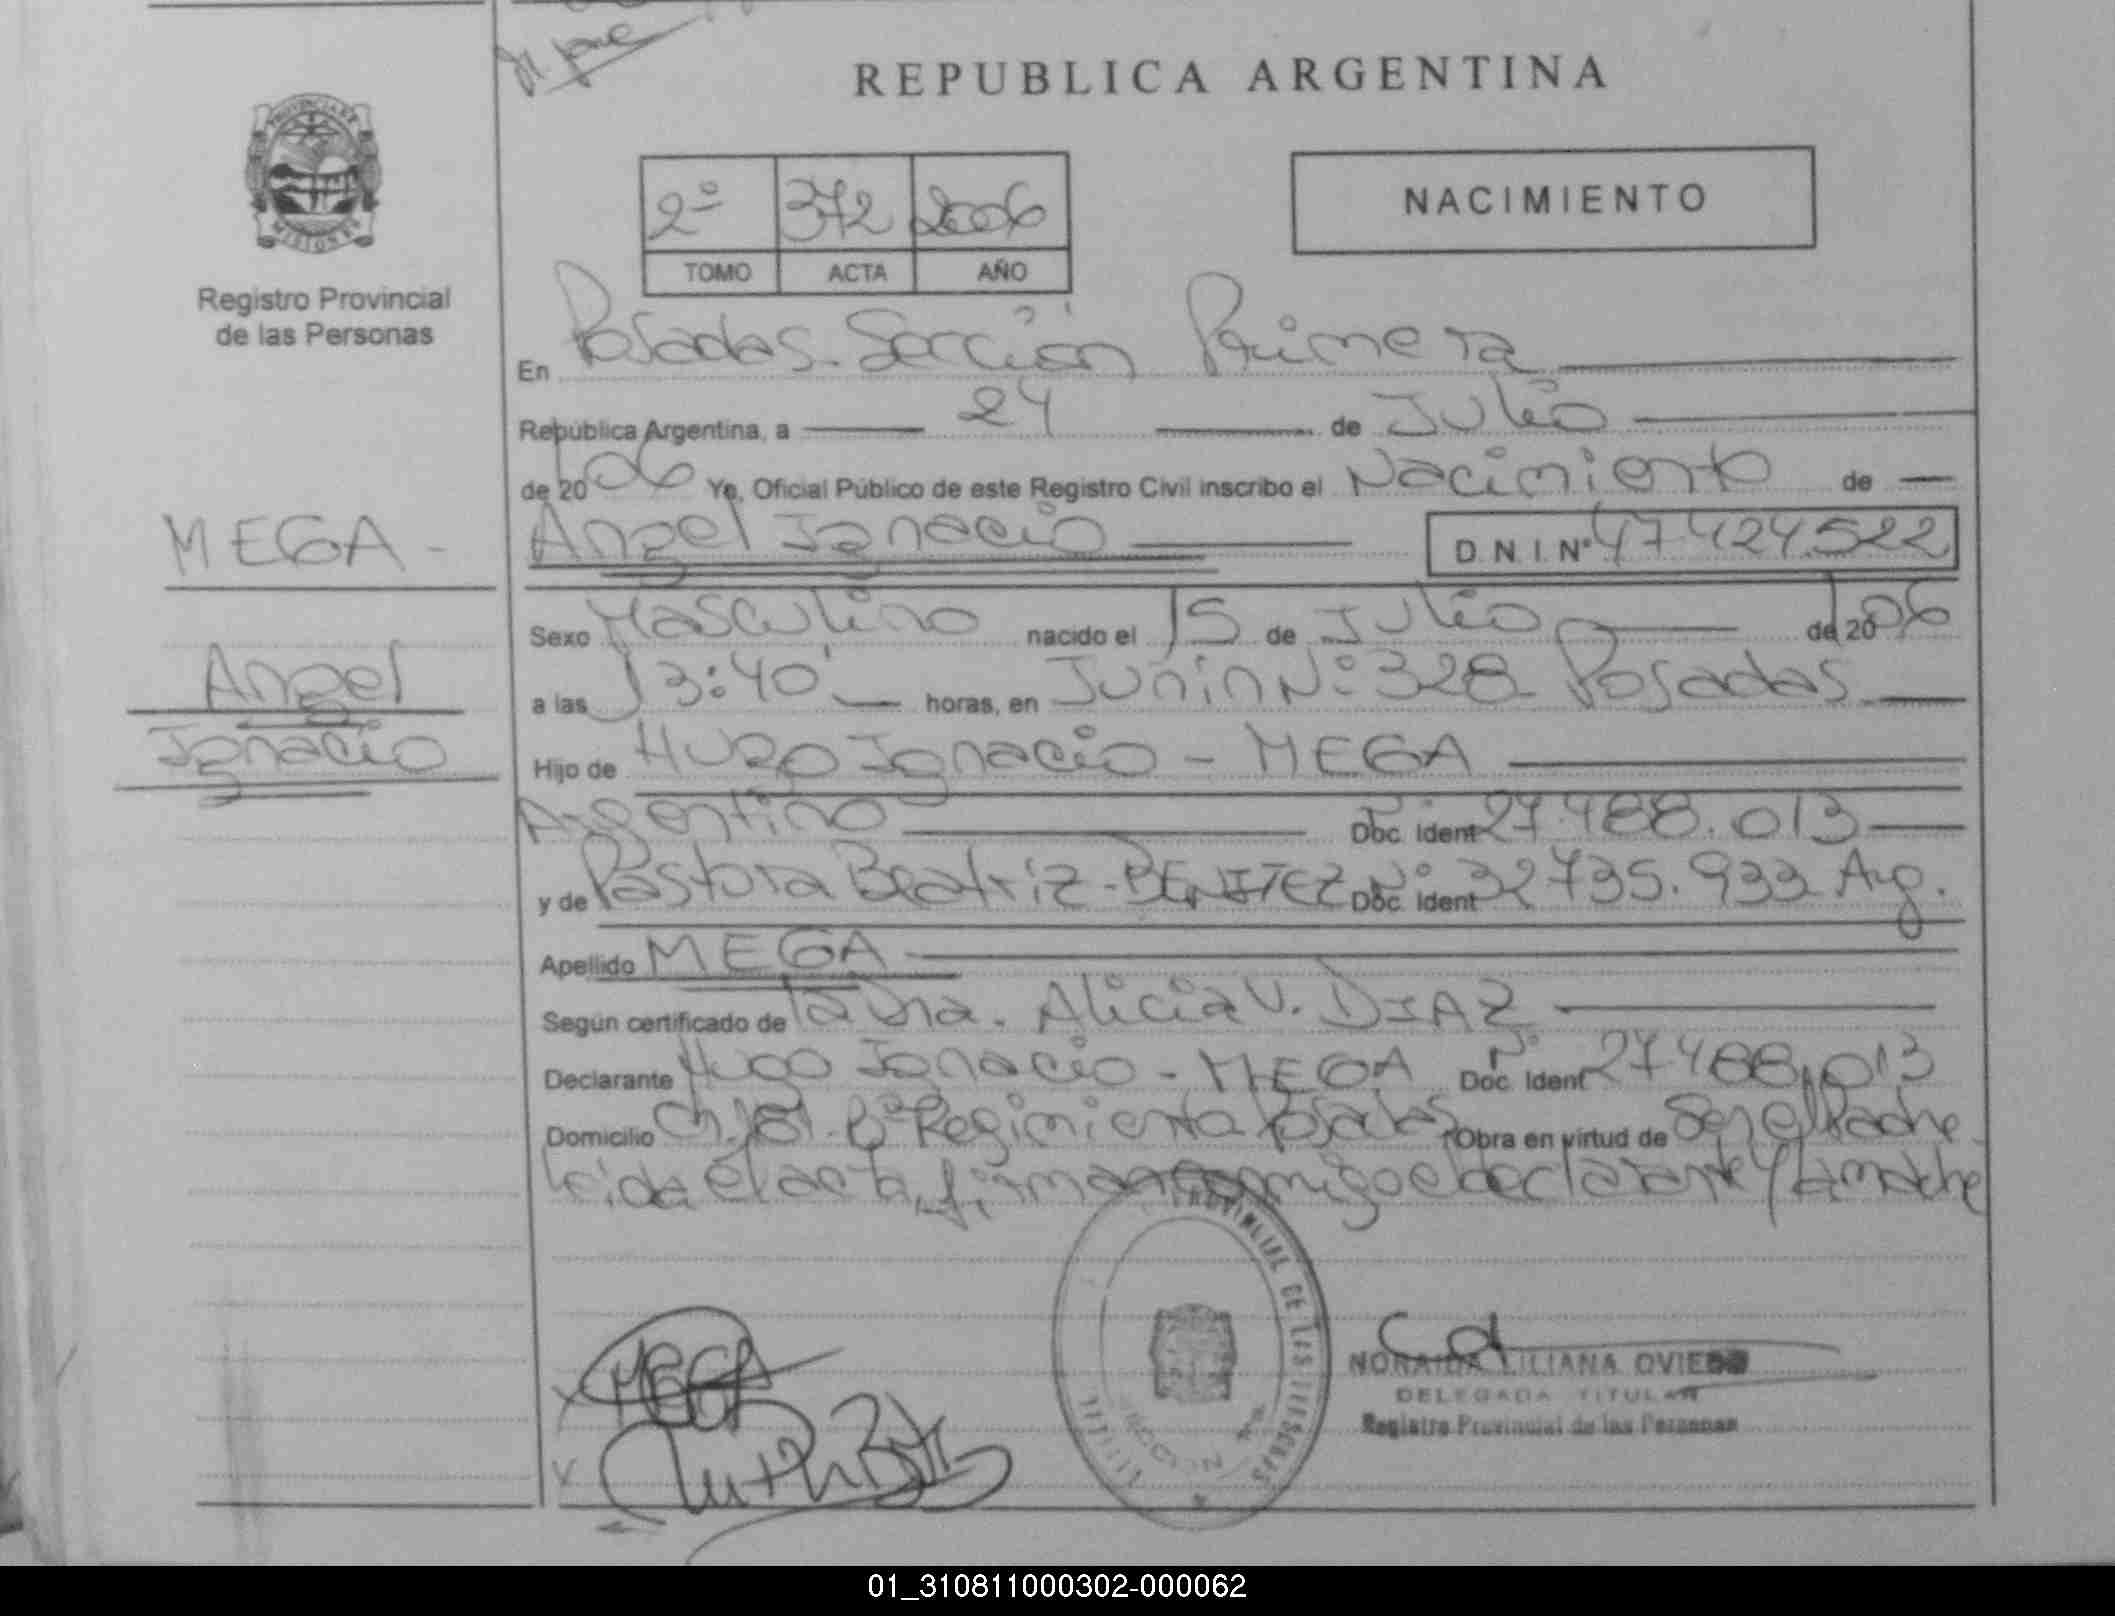 REPUBLICA ARGENTINA
PROVINCIA DE
MISIONES
Registro Provincial
de las Personas
2º 372 2006
TOMO ACTA AÑO
NACIMIENTO
En Posadas. Sección Primera
República Argentina, a 24 de Julio
de 2006 Yo, Oficial Público de este Registro Civil inscribo el Nacimiento de
MEGA -
Angel
Ignacio
Angel Ignacio D.N.I.Nº 47424.522
Sexo Masculino nacido el 15 de Julio de 2006
a las 13:40' horas, en Junin Nº 328 Posadas
Hijo de Hugo Ignacio - MEGA
Argentino Doc. Ident Nº 27.488.013
y de Pastora Beatriz - BENITEZ Doc. Ident Nº 32735.933 Arg.
Apellido MEGA
Según certificado de la Dra. Alicia V. DIAZ
Declarante Hugo Ignacio - MEGA Doc. Ident Nº 27488.013
Domicilio Ch. 181. Bº Regimiento Posadas Obra en virtud de Ser el Padre
leida el acta, firman conmigo el declarante y la madre
MEGA
NORAIDA LILIANA OVIEDO
DELEGADA TITULAR
Registro Provincial de las Personas
01_310811000302-000062